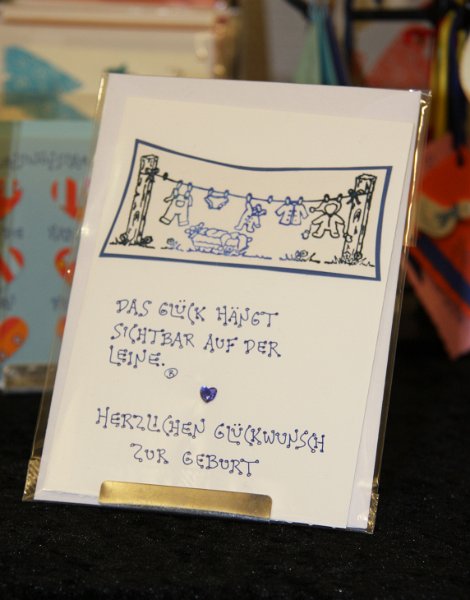 DAS GLÜCK HÄNGT
SICHTBAR AUF DER
LEINE.®
HERZLICHEN GLÜCKWUNSCH
ZUR GEBURT